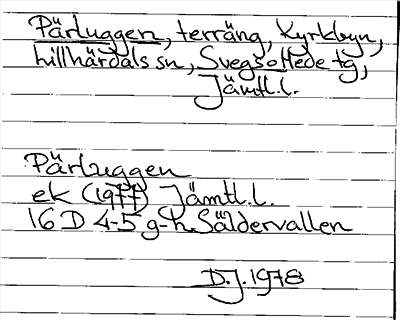 Pärluggen, terräng, Kyrkbyn,
Lillhärdals sn, Svegs o Hede tg,
Jämtl.l.
Pärluggen
ek (1977) Jämtl.l.
16 D 4-5 g-h Säldervallen
D.J. 1978